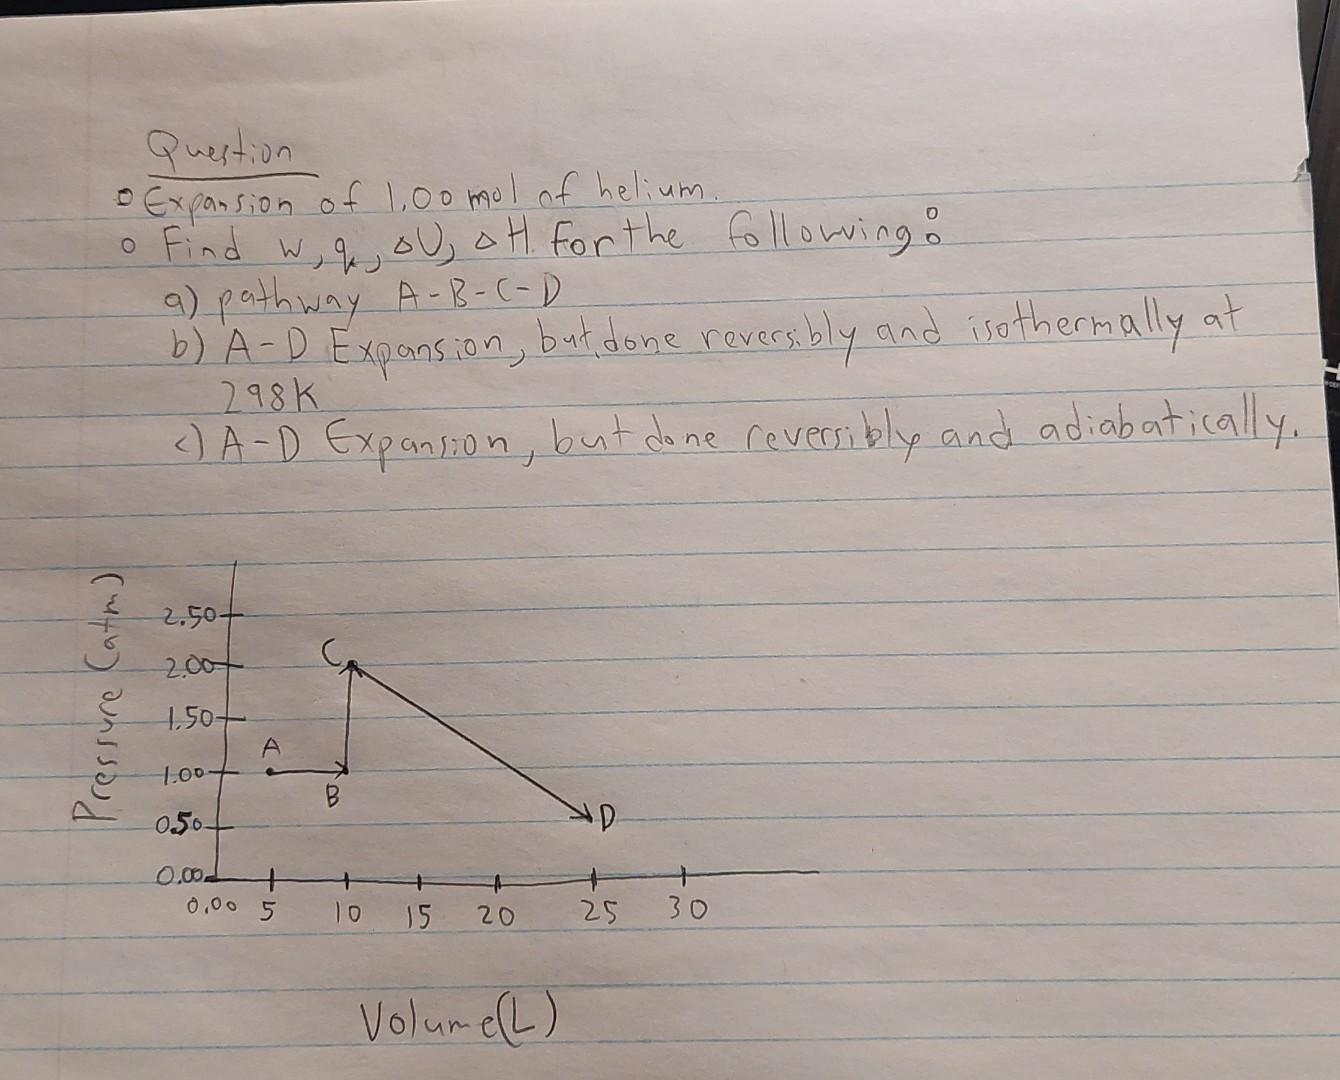 Question
o Expansion of 1.00 mol of helium.
o Find w, q, ΔU, ΔH for the following:
a) pathway A-B-C-D
b) A-D Expansion, but done reversibly and isothermally at
298K
c) A-D Expansion, but done reversibly and adiabatically.
Pressure (atm)
2.50
2.00
1.50
1.00
0.50
0.00
C
A
B
D
0.00 5 10 15 20 25 30
Volume(L)